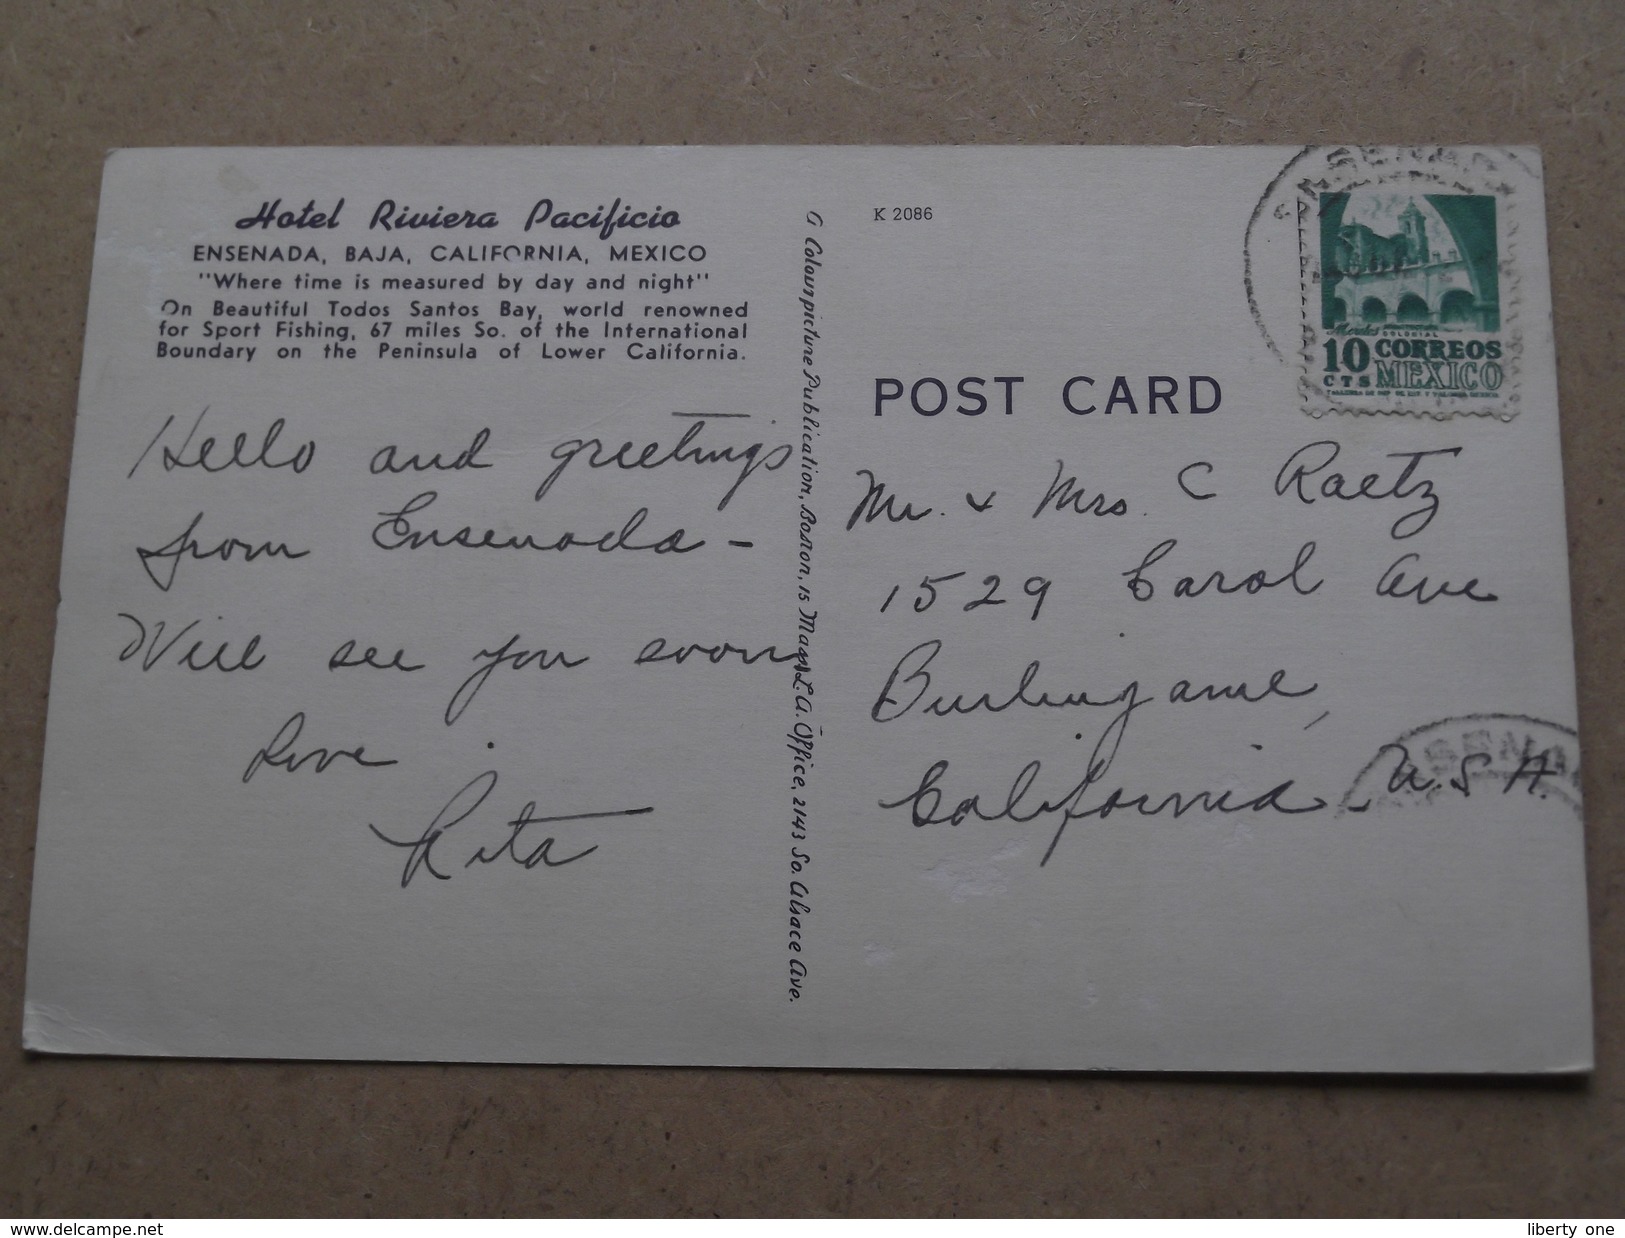 Hotel Riviera Pacificio
ENSENADA, BAJA, CALIFORNIA, MEXICO
"Where time is measured by day and night"
On Beautiful Todos Santos Bay, world renowned
for Sport Fishing, 67 miles So. of the International
Boundary on the Peninsula of Lower California.
Hello and greetings
from Ensenada -
Will see you soon
Love
Rita
A Colourpicture Publication, Boston, 15 Mass. L.A. Office, 2143 So. Alsace Ave.
K 2086
POST CARD
ENSENADA
Morelos
COLONIAL
10 CORREOS
CTS MEXICO
Mr. & Mrs. C Raetz
1529 Carol Ave
Burlingame,
California - U.S.A.
www.delcampe.net
liberty one